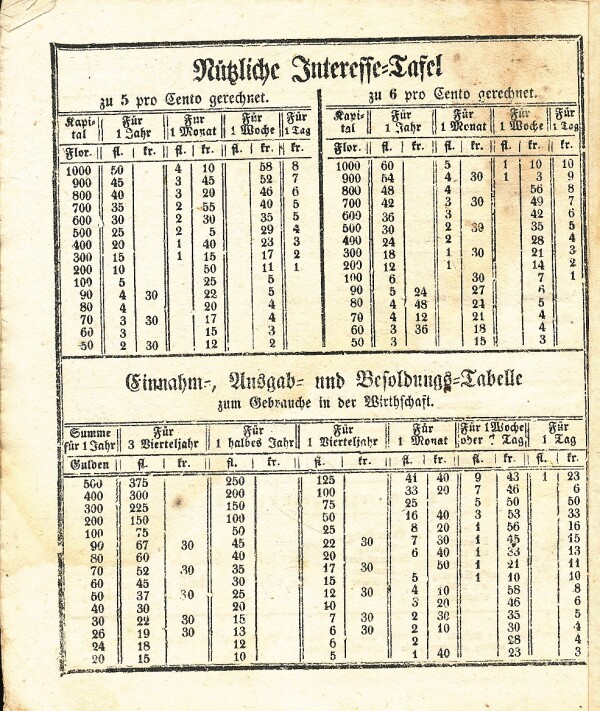 Nützliche Interesse-Tafel
zu 5 pro Cento gerechnet. zu 6 pro Cento gerechnet.
Kapi- Für Für Für Für Kapi- Für Für Für Für
tal 1 Jahr 1 Monat 1 Woche 1 Tag tal 1 Jahr 1 Monat 1 Woche 1 Tag
Flor. fl. kr. fl. kr. fl. kr. kr. Flor. fl. kr. fl. kr. fl. kr. kr.
1000 50 4 10 58 8 1000 60 5 1 10 10
900 45 3 45 52 7 900 54 4 30 1 3 9
800 40 3 20 46 6 800 48 4 56 8
700 35 2 55 40 5 700 42 3 30 49 7
600 30 2 30 35 5 600 36 3 42 6
500 25 2 5 29 4 500 30 2 30 35 5
400 20 1 40 23 3 400 24 2 28 4
300 15 1 15 17 2 300 18 1 30 21 3
200 10 50 11 1 200 12 1 14 2
100 5 25 5 100 6 30 7 1
90 4 30 22 5 90 5 24 27 6
80 4 20 4 80 4 48 24 5
70 3 30 17 4 70 4 12 21 4
60 3 15 3 60 3 36 18 4
50 2 30 12 2 50 3 15 3
Einnahm-, Ausgab- und Besoldungs-Tabelle
zum Gebrauche in der Wirthschaft.
Summe Für Für Für Für Für 1 Woche Für
für 1 Jahr 3 Vierteljahr 1 halbes Jahr 1 Vierteljahr 1 Monat oder 7 Tag 1 Tag
Gulden fl. kr. fl. kr. fl. kr. fl. kr. fl. kr. fl. kr.
500 375 250 125 41 40 9 43 1 23
400 300 200 100 33 20 7 46 6
300 225 150 75 25 5 50 50
200 150 100 50 16 40 3 53 33
100 75 50 25 8 20 1 56 16
90 67 30 45 22 30 7 30 1 45 15
80 60 40 20 6 40 1 33 13
70 52 30 35 17 30 50 1 21 11
60 45 30 15 5 1 10 10
50 37 30 25 12 30 4 10 58 8
40 30 20 10 3 20 46 6
30 22 30 15 7 30 2 30 35 5
26 19 30 13 6 30 2 10 30 4
24 18 12 6 2 28 4
20 15 10 5 1 40 23 3